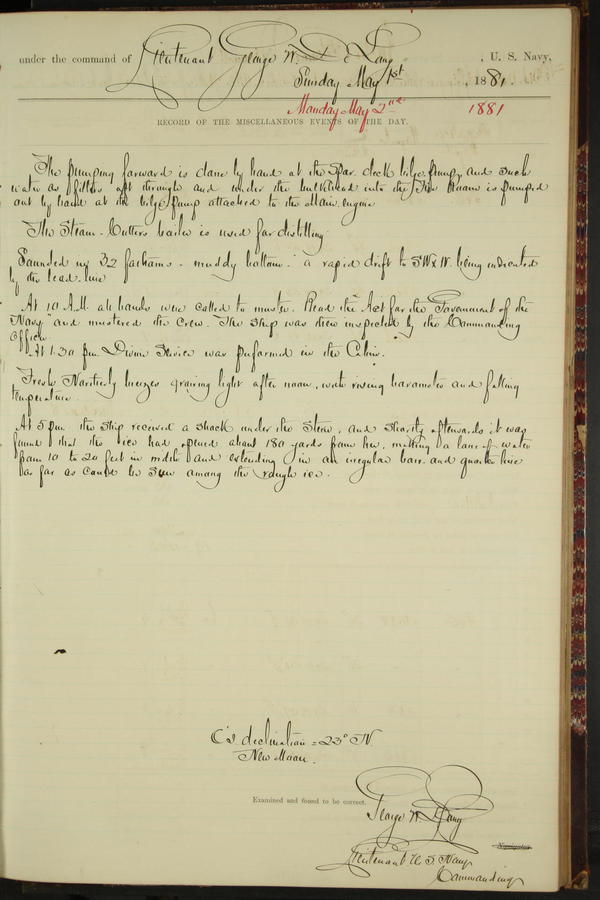 under the command of Lieutenant George W. De Long, U. S. Navy,
Sunday May 1st, 1881.
Monday May 2nd 1881
RECORD OF THE MISCELLANEOUS EVENTS OF THE DAY.
The pumping forward is done by hand at the spar deck bilge pump, and such
water as filters aft through and under the bulkhead into the Fire Room is pumped
out by hand at the bilge pump attached to the Main engine
The Steam-Cutters boiler is used for distilling
Sounded in 32 fathoms - muddy bottom - a rapid drift to SW x W. being indicated
by the lead line
At 10 A.M. all hands were called to muster. Read the "Act for the Government of the
Navy" and mustered the crew. The ship was then inspected by the Commanding
Officer.
At 1.30 pm Divine Service was performed in the Cabin.
Fresh Northerly breezes growing light after noon, with rising barometer and falling
temperature
At 5 pm the ship received a shock under the Stern, and shortly afterwards it was
found that the ice had opened about 180 yards from her, making a lane of water
from 10 to 20 feet in width and extending in an irregular bow and quarter line
as far as could be seen among the rough ice.
C's declination = 23° N.
New Moon.
Examined and found to be correct.
George W. De Long
Navigator.
Lieutenant U S Navy
Commanding